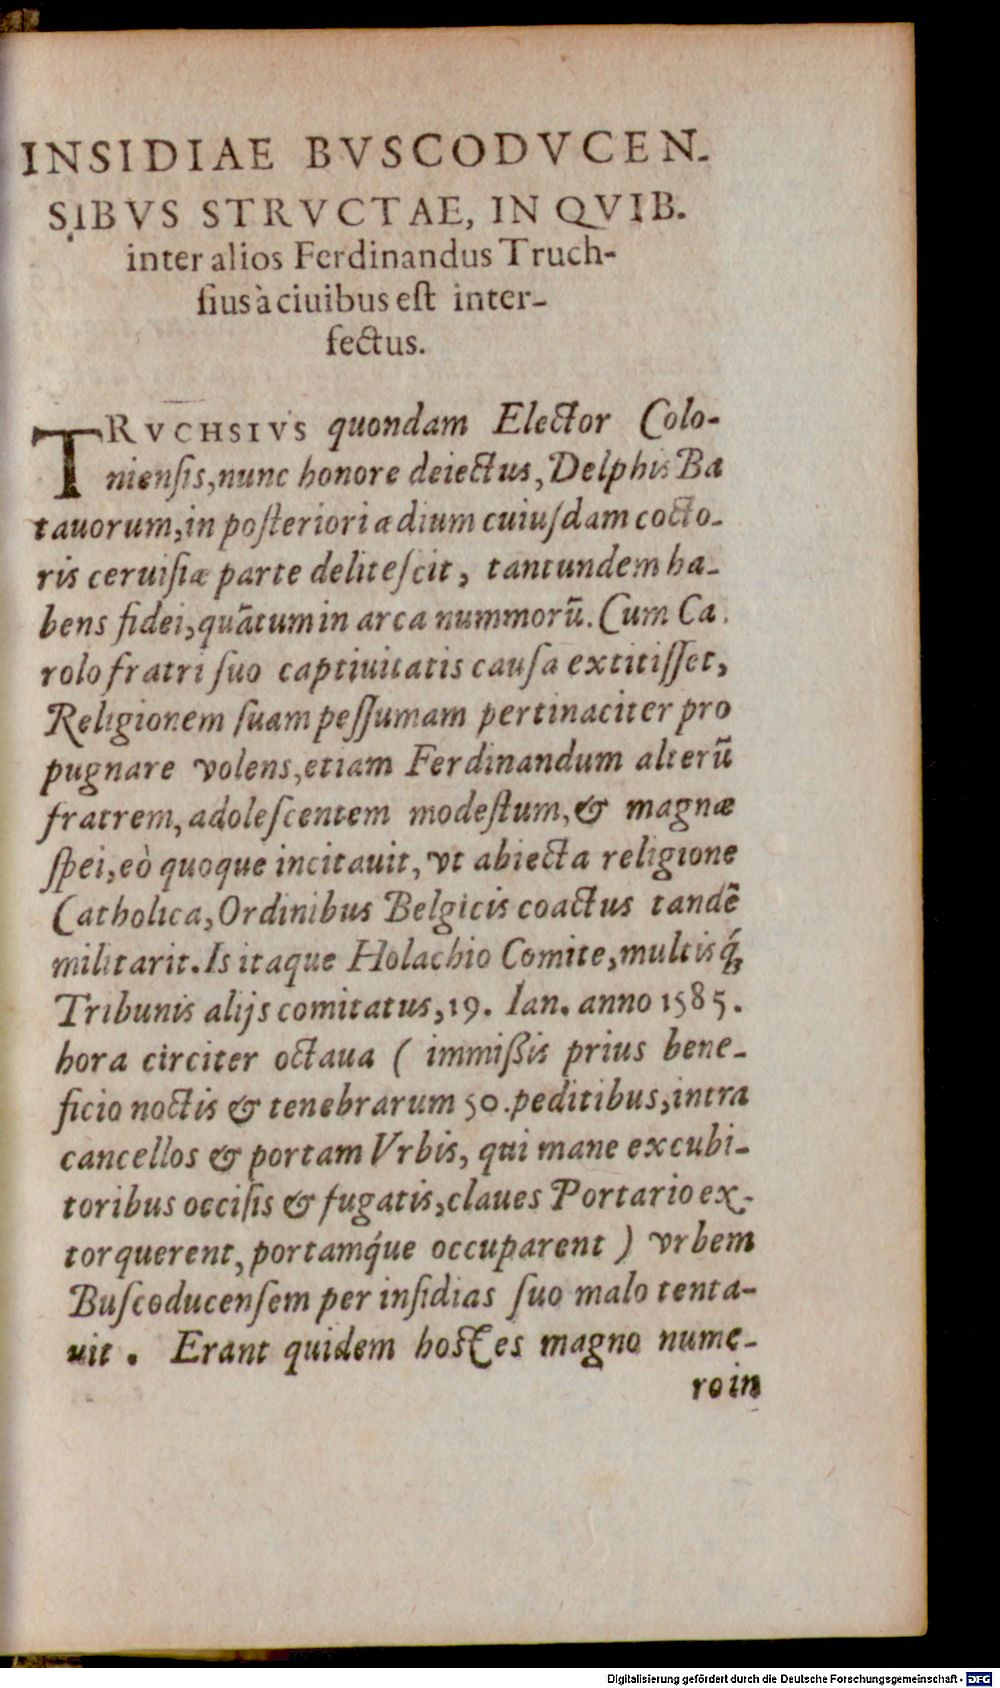 INSIDIAE BVSCODVCEN-
SIBVS STRVCTAE, IN QVIB.
inter alios Ferdinandus Truch-
sius à ciuibus est inter-
fectus.
TRVCHSIVS quondam Elector Colo-
niensis, nunc honore deiectus, Delphis Ba
tauorum, in posteriori ædium cuiusdam cocto-
ris ceruisiæ parte delitescit, tantundem ha-
bens fidei, quātum in arca nummorū. Cum Ca.
rolo fratri suo captiuitatis causa extitisset,
Religionem suam pessumam pertinaciter pro
pugnare volens, etiam Ferdinandum alterū
fratrem, adolescentem modestum, & magnæ
spei, eò quoque incitauit, vt abiecta religione
Catholica, Ordinibus Belgicis coactus tandē
militarit. Is itaque Holachio Comite, multisq́;
Tribunis alijs comitatus, 19. Ian. anno 1585.
hora circiter octaua ( immißis prius bene-
ficio noctis & tenebrarum 50. peditibus, intra
cancellos & portam Vrbis, qui mane excubi-
toribus occisis & fugatis, claues Portario ex-
torquerent, portamq́ue occuparent ) vrbem
Buscoducensem per insidias suo malo tenta-
uit. Erant quidem hostes magno nume-
ro in
Digitalisierung gefördert durch die Deutsche Forschungsgemeinschaft - DFG